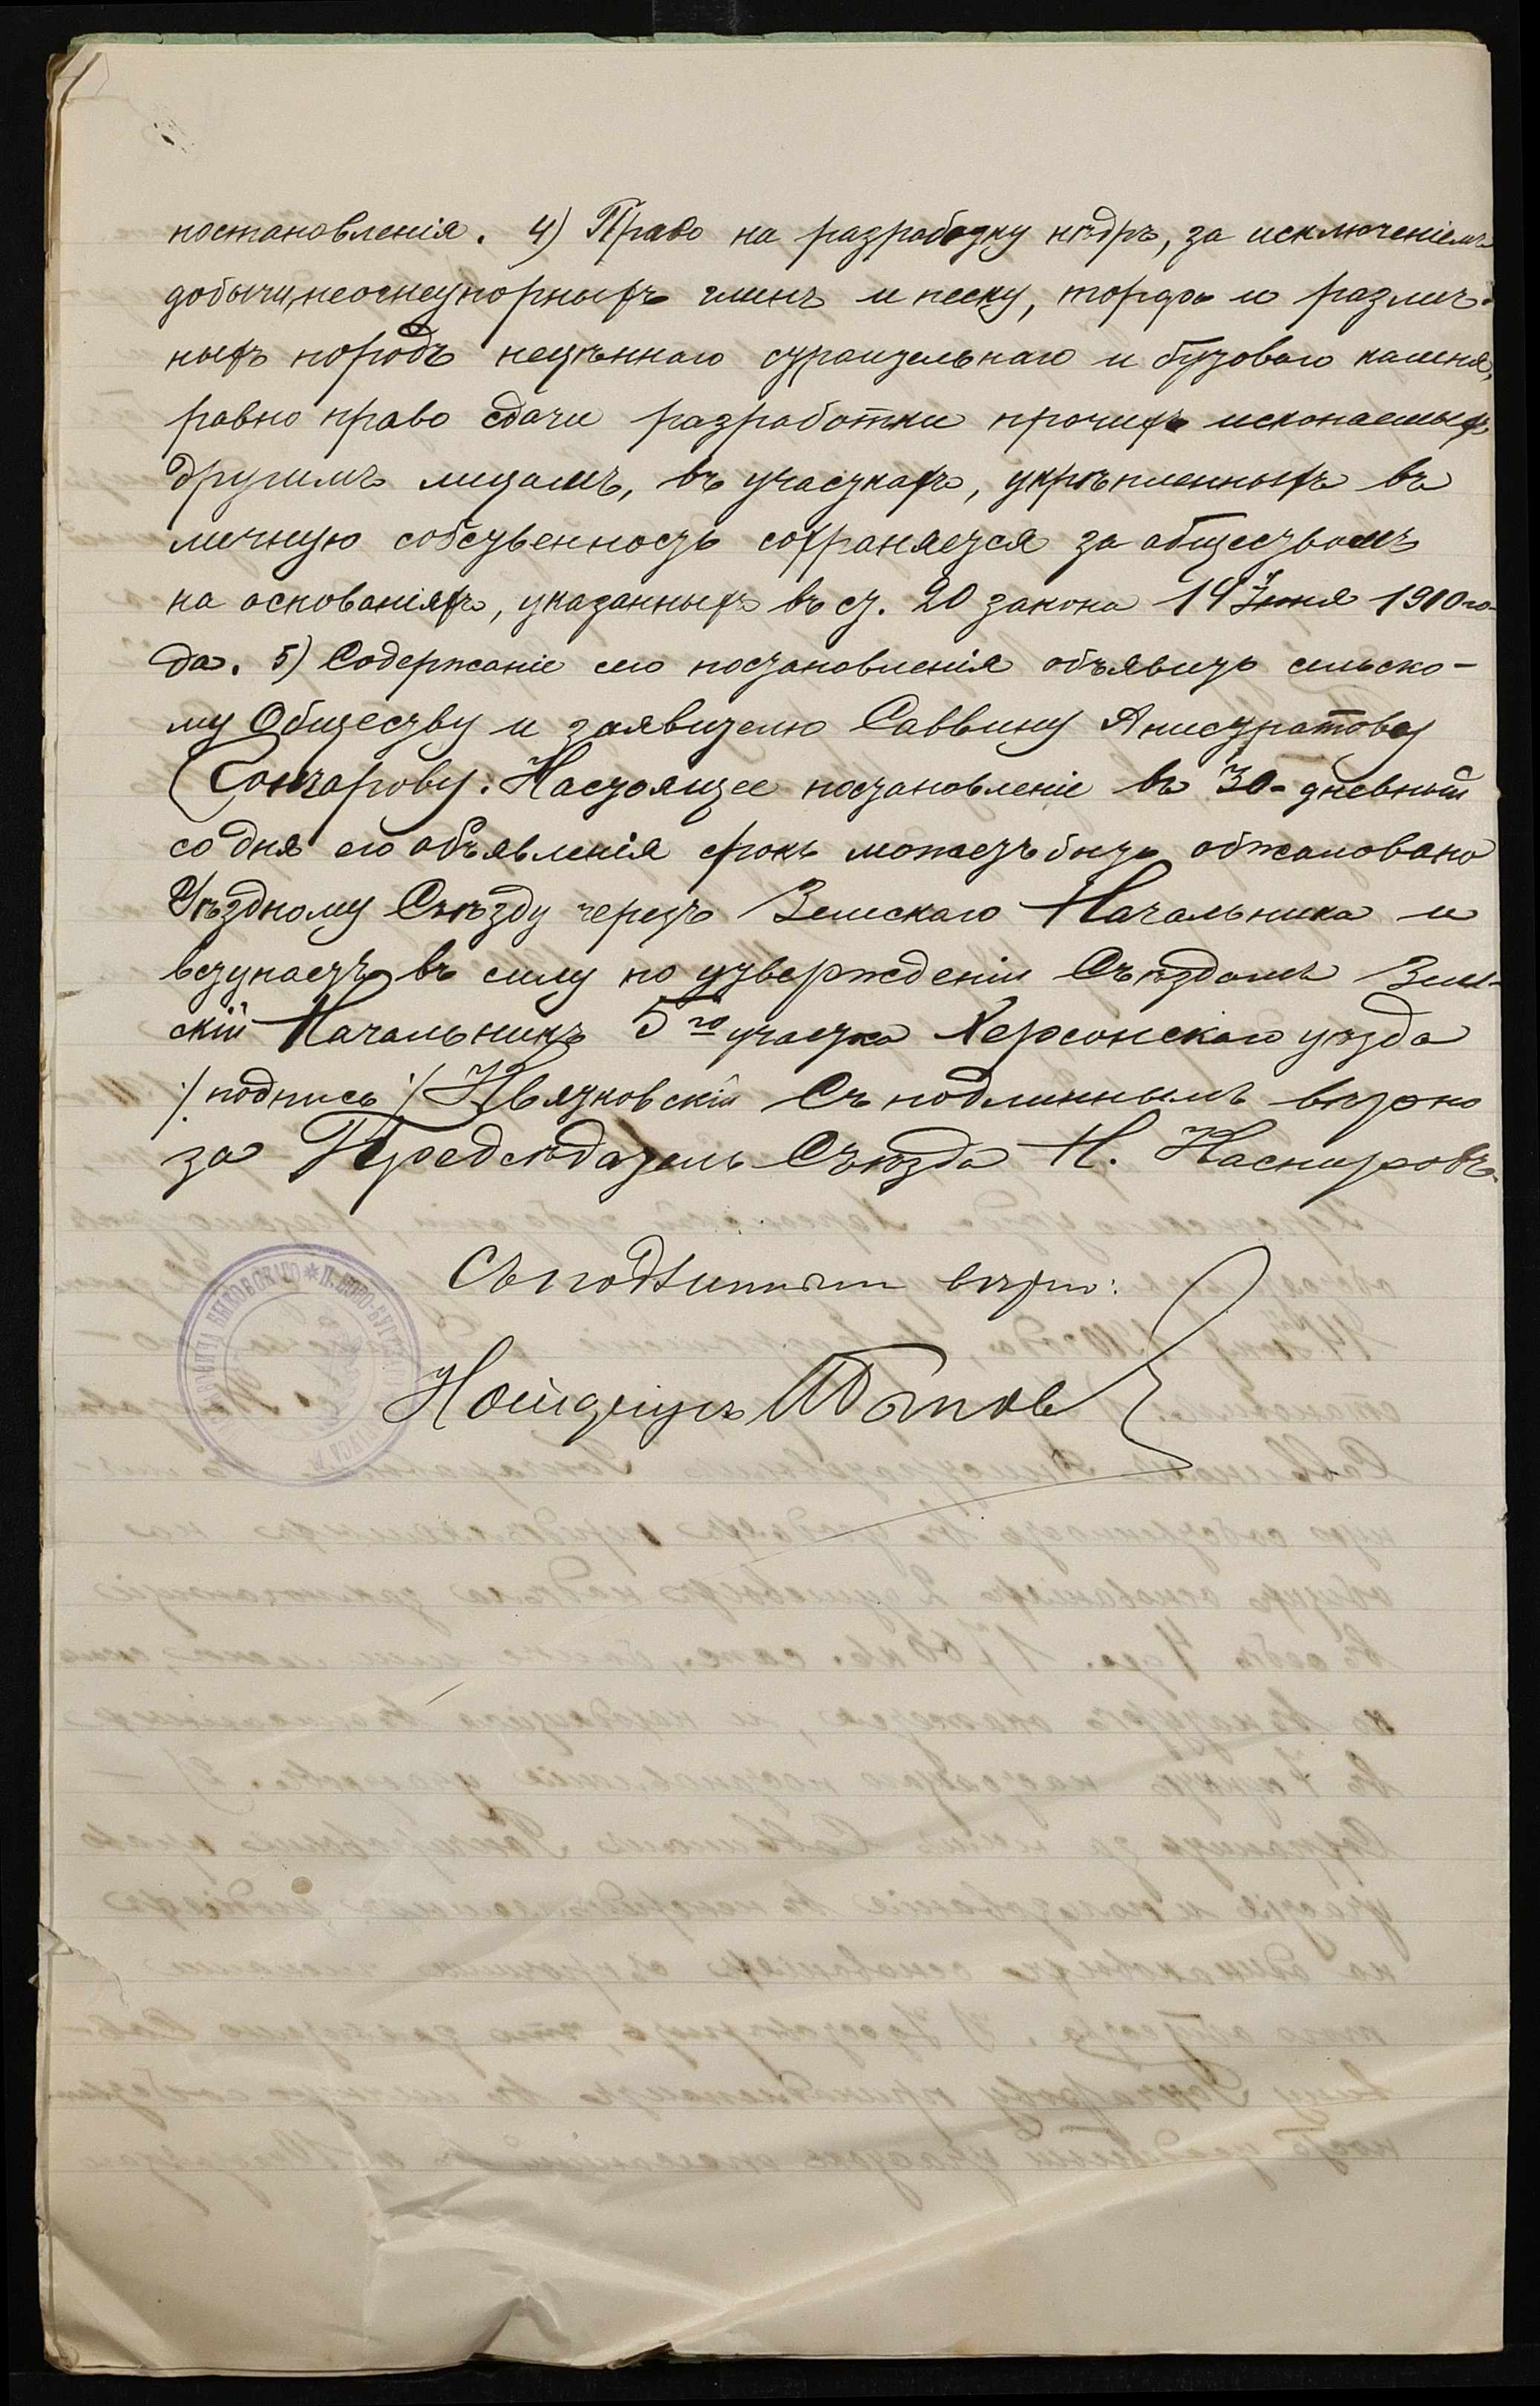 постановленія. 4) Право на разработку нѣдръ, за исключеніемъ
добычи, неогнеупорныхъ глинъ и песку, торфа и различ-
ныхъ породъ нецѣннаго строительнаго и бутоваго камня,
равно право сдачи разработки прочихъ ископаемыхъ
другимъ лицамъ, въ участкахъ, укрѣпленныхъ въ
личную собственность сохраняется за обществомъ
на основаніяхъ, указанныхъ въ ст. 20 закона 14 Іюня 1910 го-
да. 5) Содержаніе сего постановленія объявить сельско-
му Обществу и заявителю Саввину Анистратову
Гончарову. Настоящее постановленіе въ 30-дневный
со дня его объявленія срокъ можетъ быть обжаловано
Уѣздному Съѣзду черезъ Земскаго Начальника и
вступаетъ въ силу по утвержденіи Съѣздомъ Зем-
скій Начальникъ 5го участка Херсонскаго уѣзда
/подпись/ Квятковскій Съ подлиннымъ вѣрно
за Предсѣдатель Съѣзда Н.
Съ подлиннымъ вѣрно:
Нотаріусъ